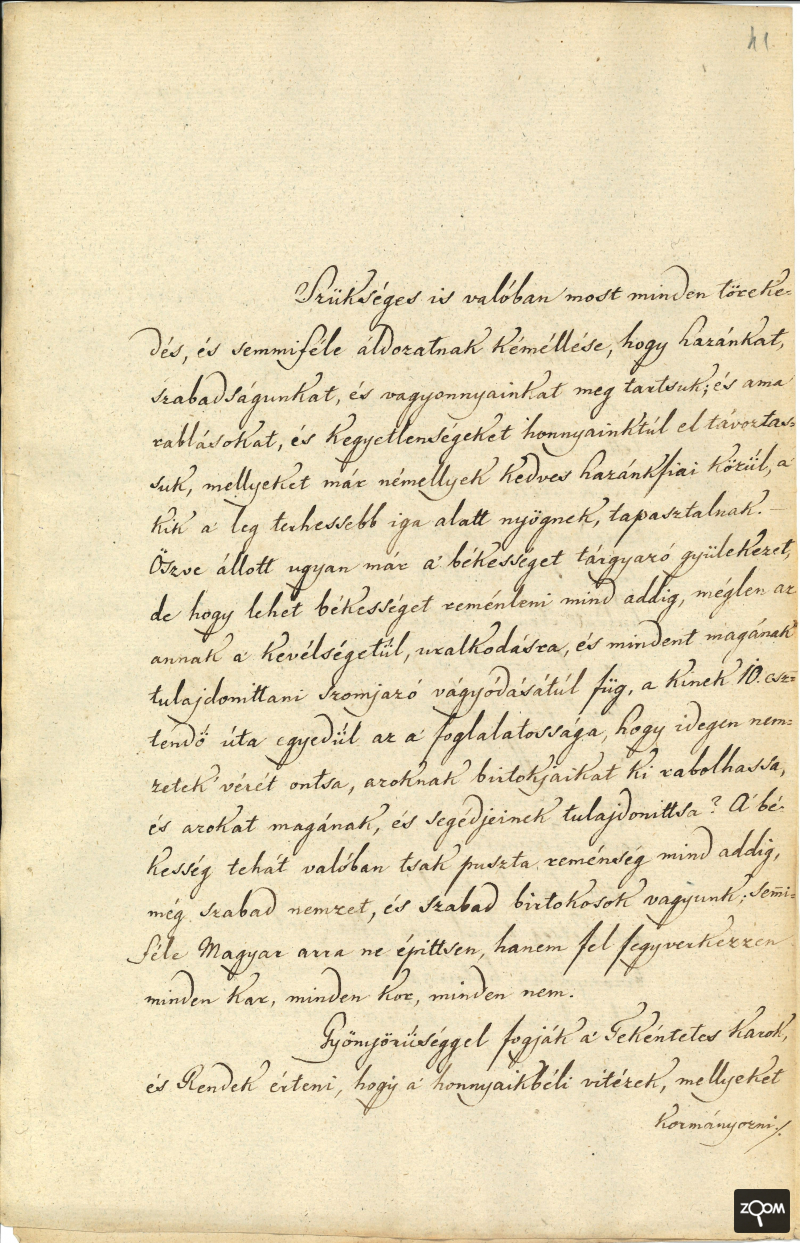 41
Szükséges is valóban most minden töreke-
dés, és semmiféle áldozatnak kéméllése, hogy hazánkat,
szabadságunkat, és vagyonnyainkat meg tartsuk; és ama
rablásokat, és kegyetlenségeket honnyainktúl el távoztas-
suk, mellyeket már némellyek kedves hazánkfiai közül, a
kik a leg terhessebb iga alatt nyögnek, tapasztalnak. –
Öszve állott ugyan már a békességet tárgyazó gyülekezet,
de hogy lehet békességet reménleni mind addig, méglen az
annak a kevélségetűl, uralkodásra, és mindent magának
tulajdonittani szomjazó vágyódásátúl függ, a kinek 10. esz-
tendő úta egyedűl az a' foglalatossága, hogy idegen nem-
zetek' vérét ontsa, azoknak birtokjaikat ki rabolhassa,
és azokat magának, és segédjeinek tulajdonittsa? A' bé-
kesség tehát valóban tsak puszta reménség mind addig,
még szabad nemzet, és szabad birtokosok vagyunk; sem̄i-
féle Magyar arra ne épittsen, hanem fel fegyverkezzen
minden kar, minden kor, minden nem.
Gyönyörűséggel fogják a' Tekéntetes Karok,
és Rendek érteni, hogy a' honnyaikbéli vitézek, mellyeket
kormányozni./.
ZOOM